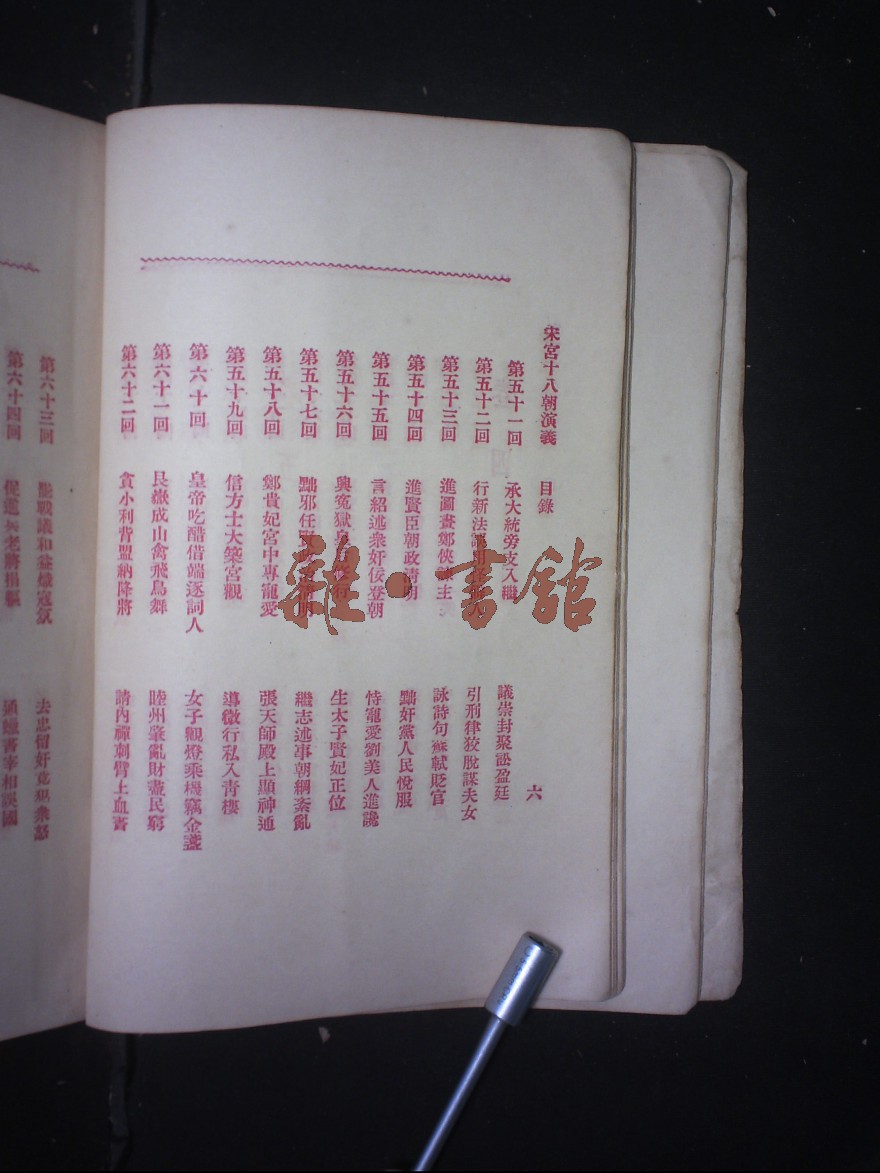 宋宮十八朝演義 目錄 六
第五十一回 承大統旁支入繼 議崇封聚訟盈廷
第五十二回 行新法 引刑律狡脫謀夫女
第五十三回 進圖畫鄭俠 主 詠詩句蘇軾貶官
第五十四回 進賢臣朝政清明 黜奸黨人民悅服
第五十五回 言紹述衆奸佞登朝 恃寵愛劉美人進讒
第五十六回 興寃獄 生太子賢妃正位
第五十七回 黜邪任 繼志述事朝綱紊亂
第五十八回 鄭貴妃宮中專寵愛 張天師殿上顯神通
第五十九回 信方士大築宮觀 導微行私入靑樓
第六十回 皇帝吃醋借端逐詞人 女子觀燈乘機竊金盞
第六十一回 艮嶽成山禽飛鳥舞 睦州肇亂財盡民窮
第六十二回 貪小利背盟納降將 請內禪刺臂上血書
第六十三回 戰議和 去忠留奸 衆怒
第六十四回 老將捐軀 書宰相誤國
雜·書館